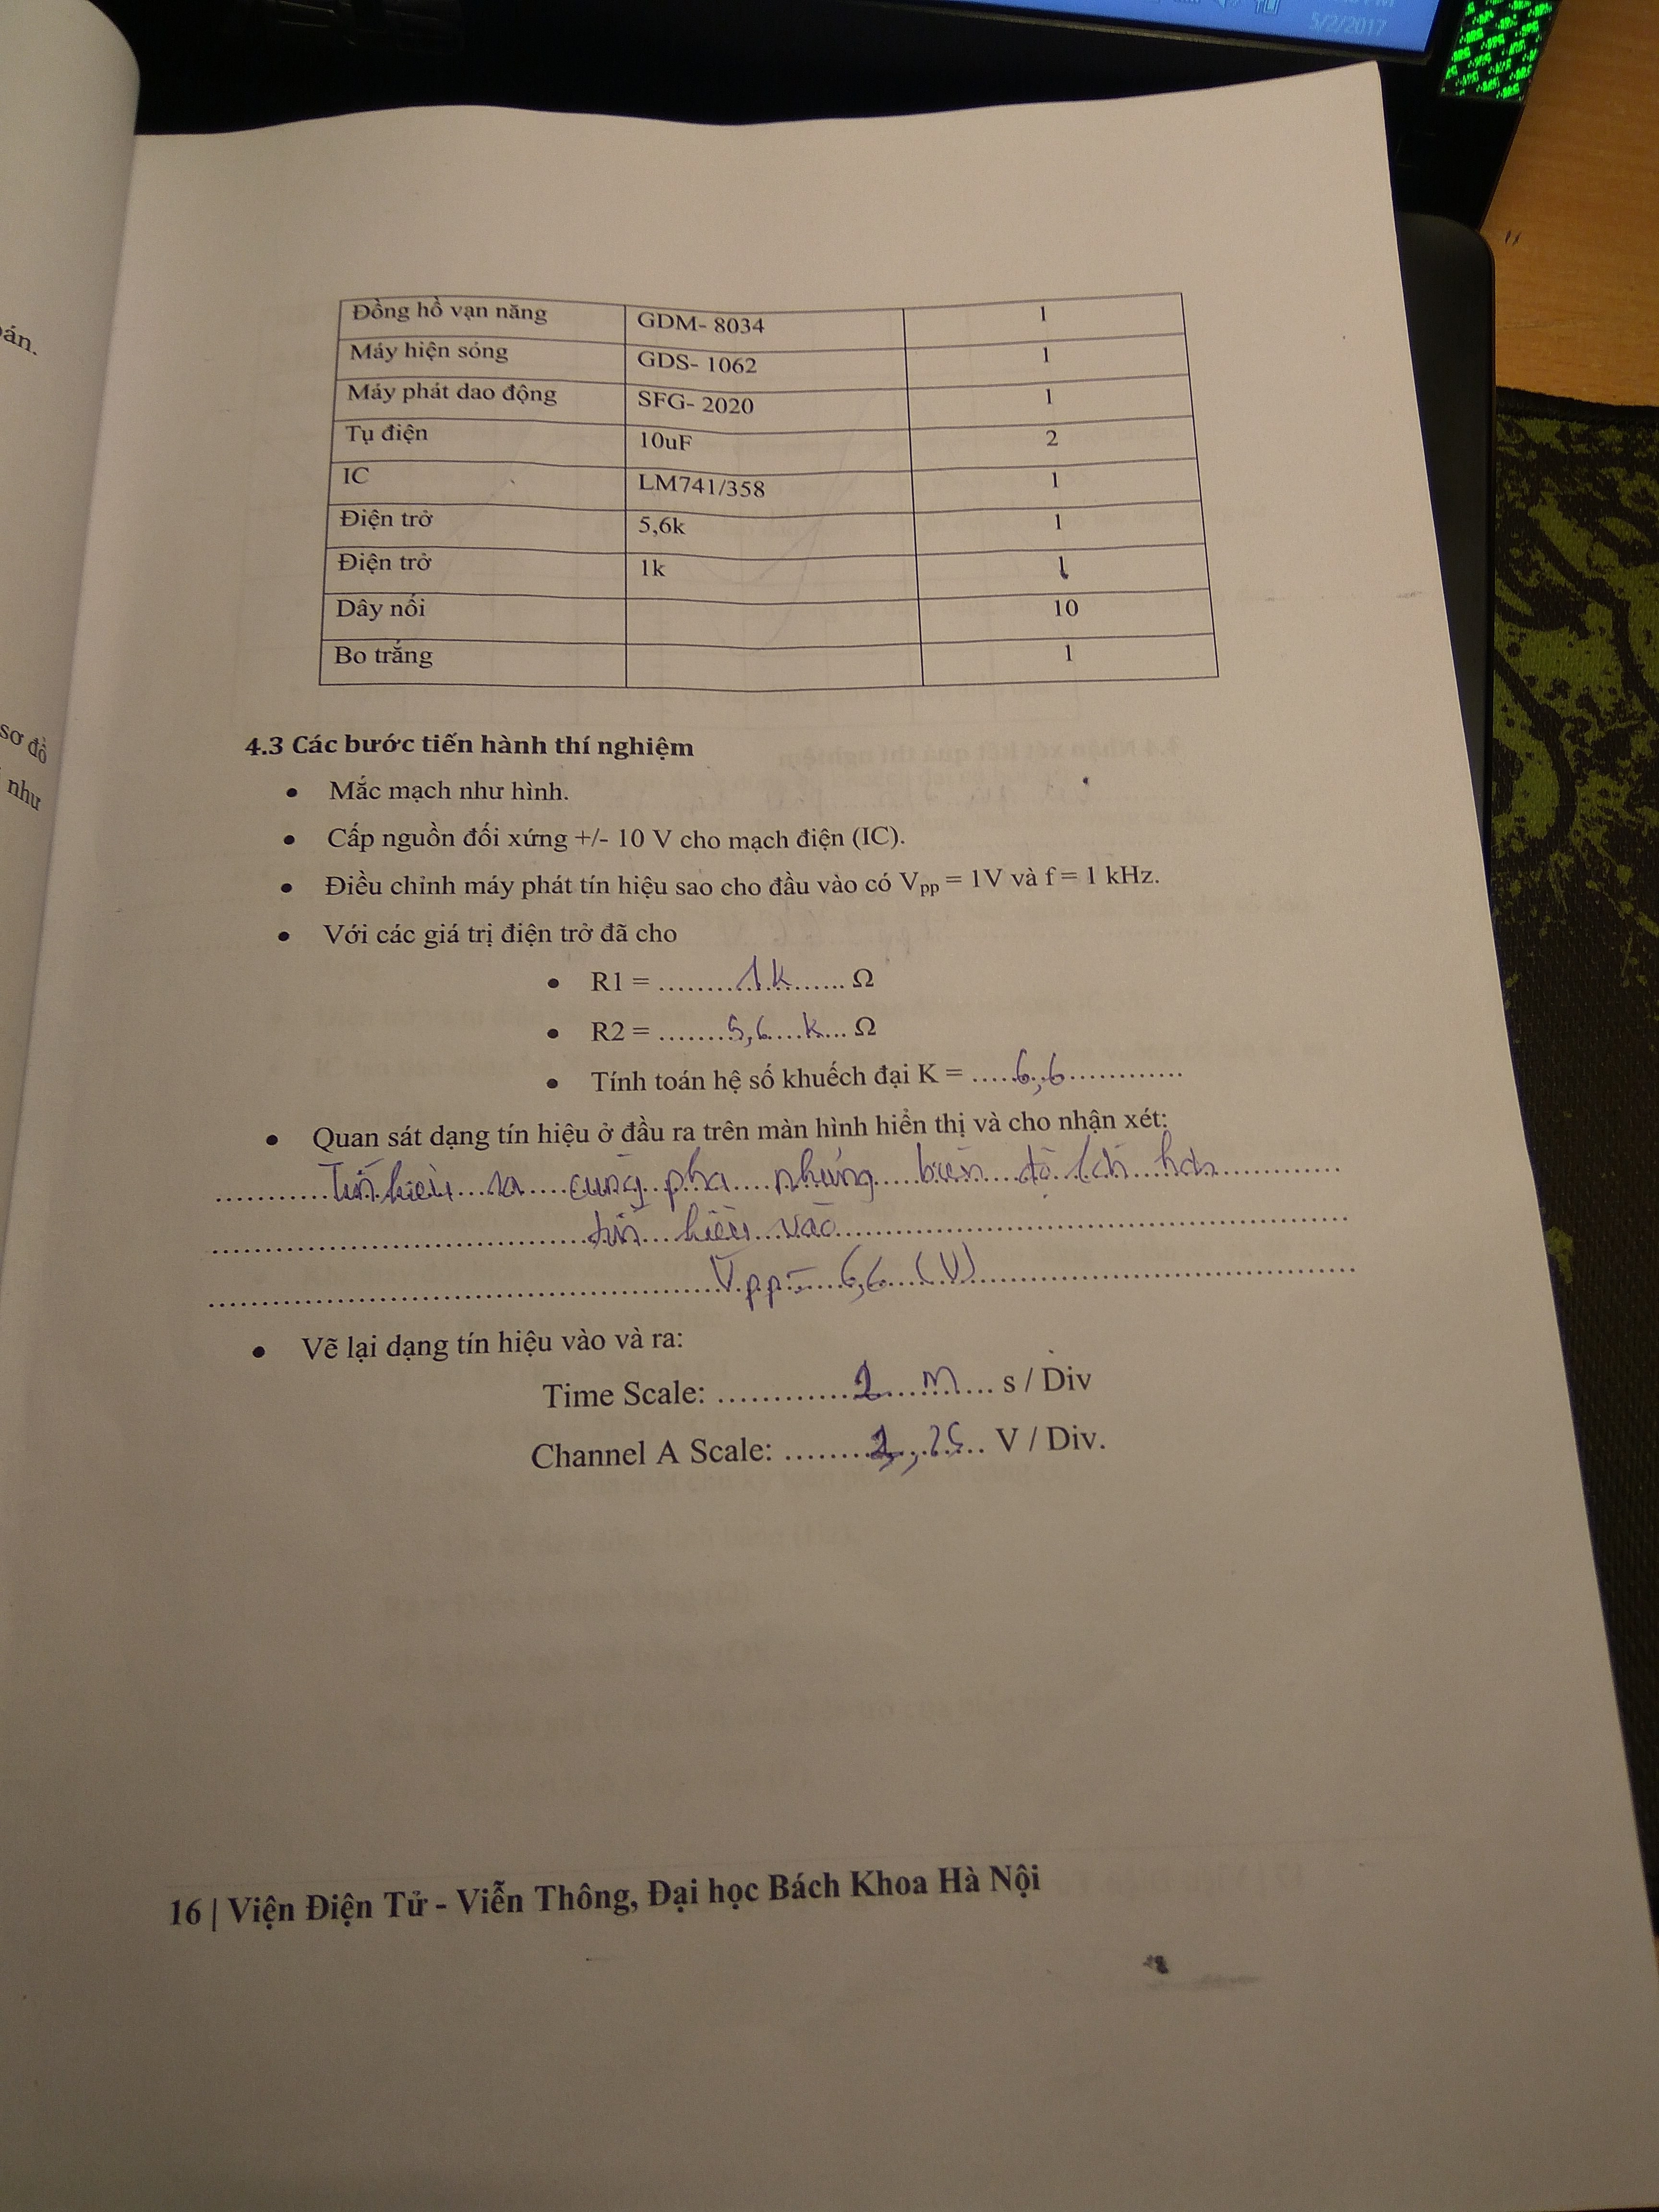 5/2/2017
án.
sơ đồ
như
Đồng hồ vạn năng GDM- 8034 1
Máy hiện sóng GDS- 1062 1
Máy phát dao động SFG- 2020 1
Tụ điện 10uF 2
IC LM741/358 1
Điện trở 5,6k 1
Điện trở 1k 1
Dây nối 10
Bo trắng 1
4.3 Các bước tiến hành thí nghiệm
• Mắc mạch như hình.
• Cấp nguồn đối xứng +/- 10 V cho mạch điện (IC).
• Điều chỉnh máy phát tín hiệu sao cho đầu vào có Vpp = 1V và f = 1 kHz.
• Với các giá trị điện trở đã cho
• R1 = ........1k...... Ω
• R2 = .......5,6...k... Ω
• Tính toán hệ số khuếch đại K = .....6,6............
• Quan sát dạng tín hiệu ở đầu ra trên màn hình hiển thị và cho nhận xét:
Tín hiệu ra cùng pha nhưng biên độ lớn hơn
tín hiệu vào
Vpp = 6,6 (V)
• Vẽ lại dạng tín hiệu vào và ra:
Time Scale: ............ m...... s / Div
Channel A Scale: ............ V / Div.
16 | Viện Điện Tử - Viễn Thông, Đại học Bách Khoa Hà Nội